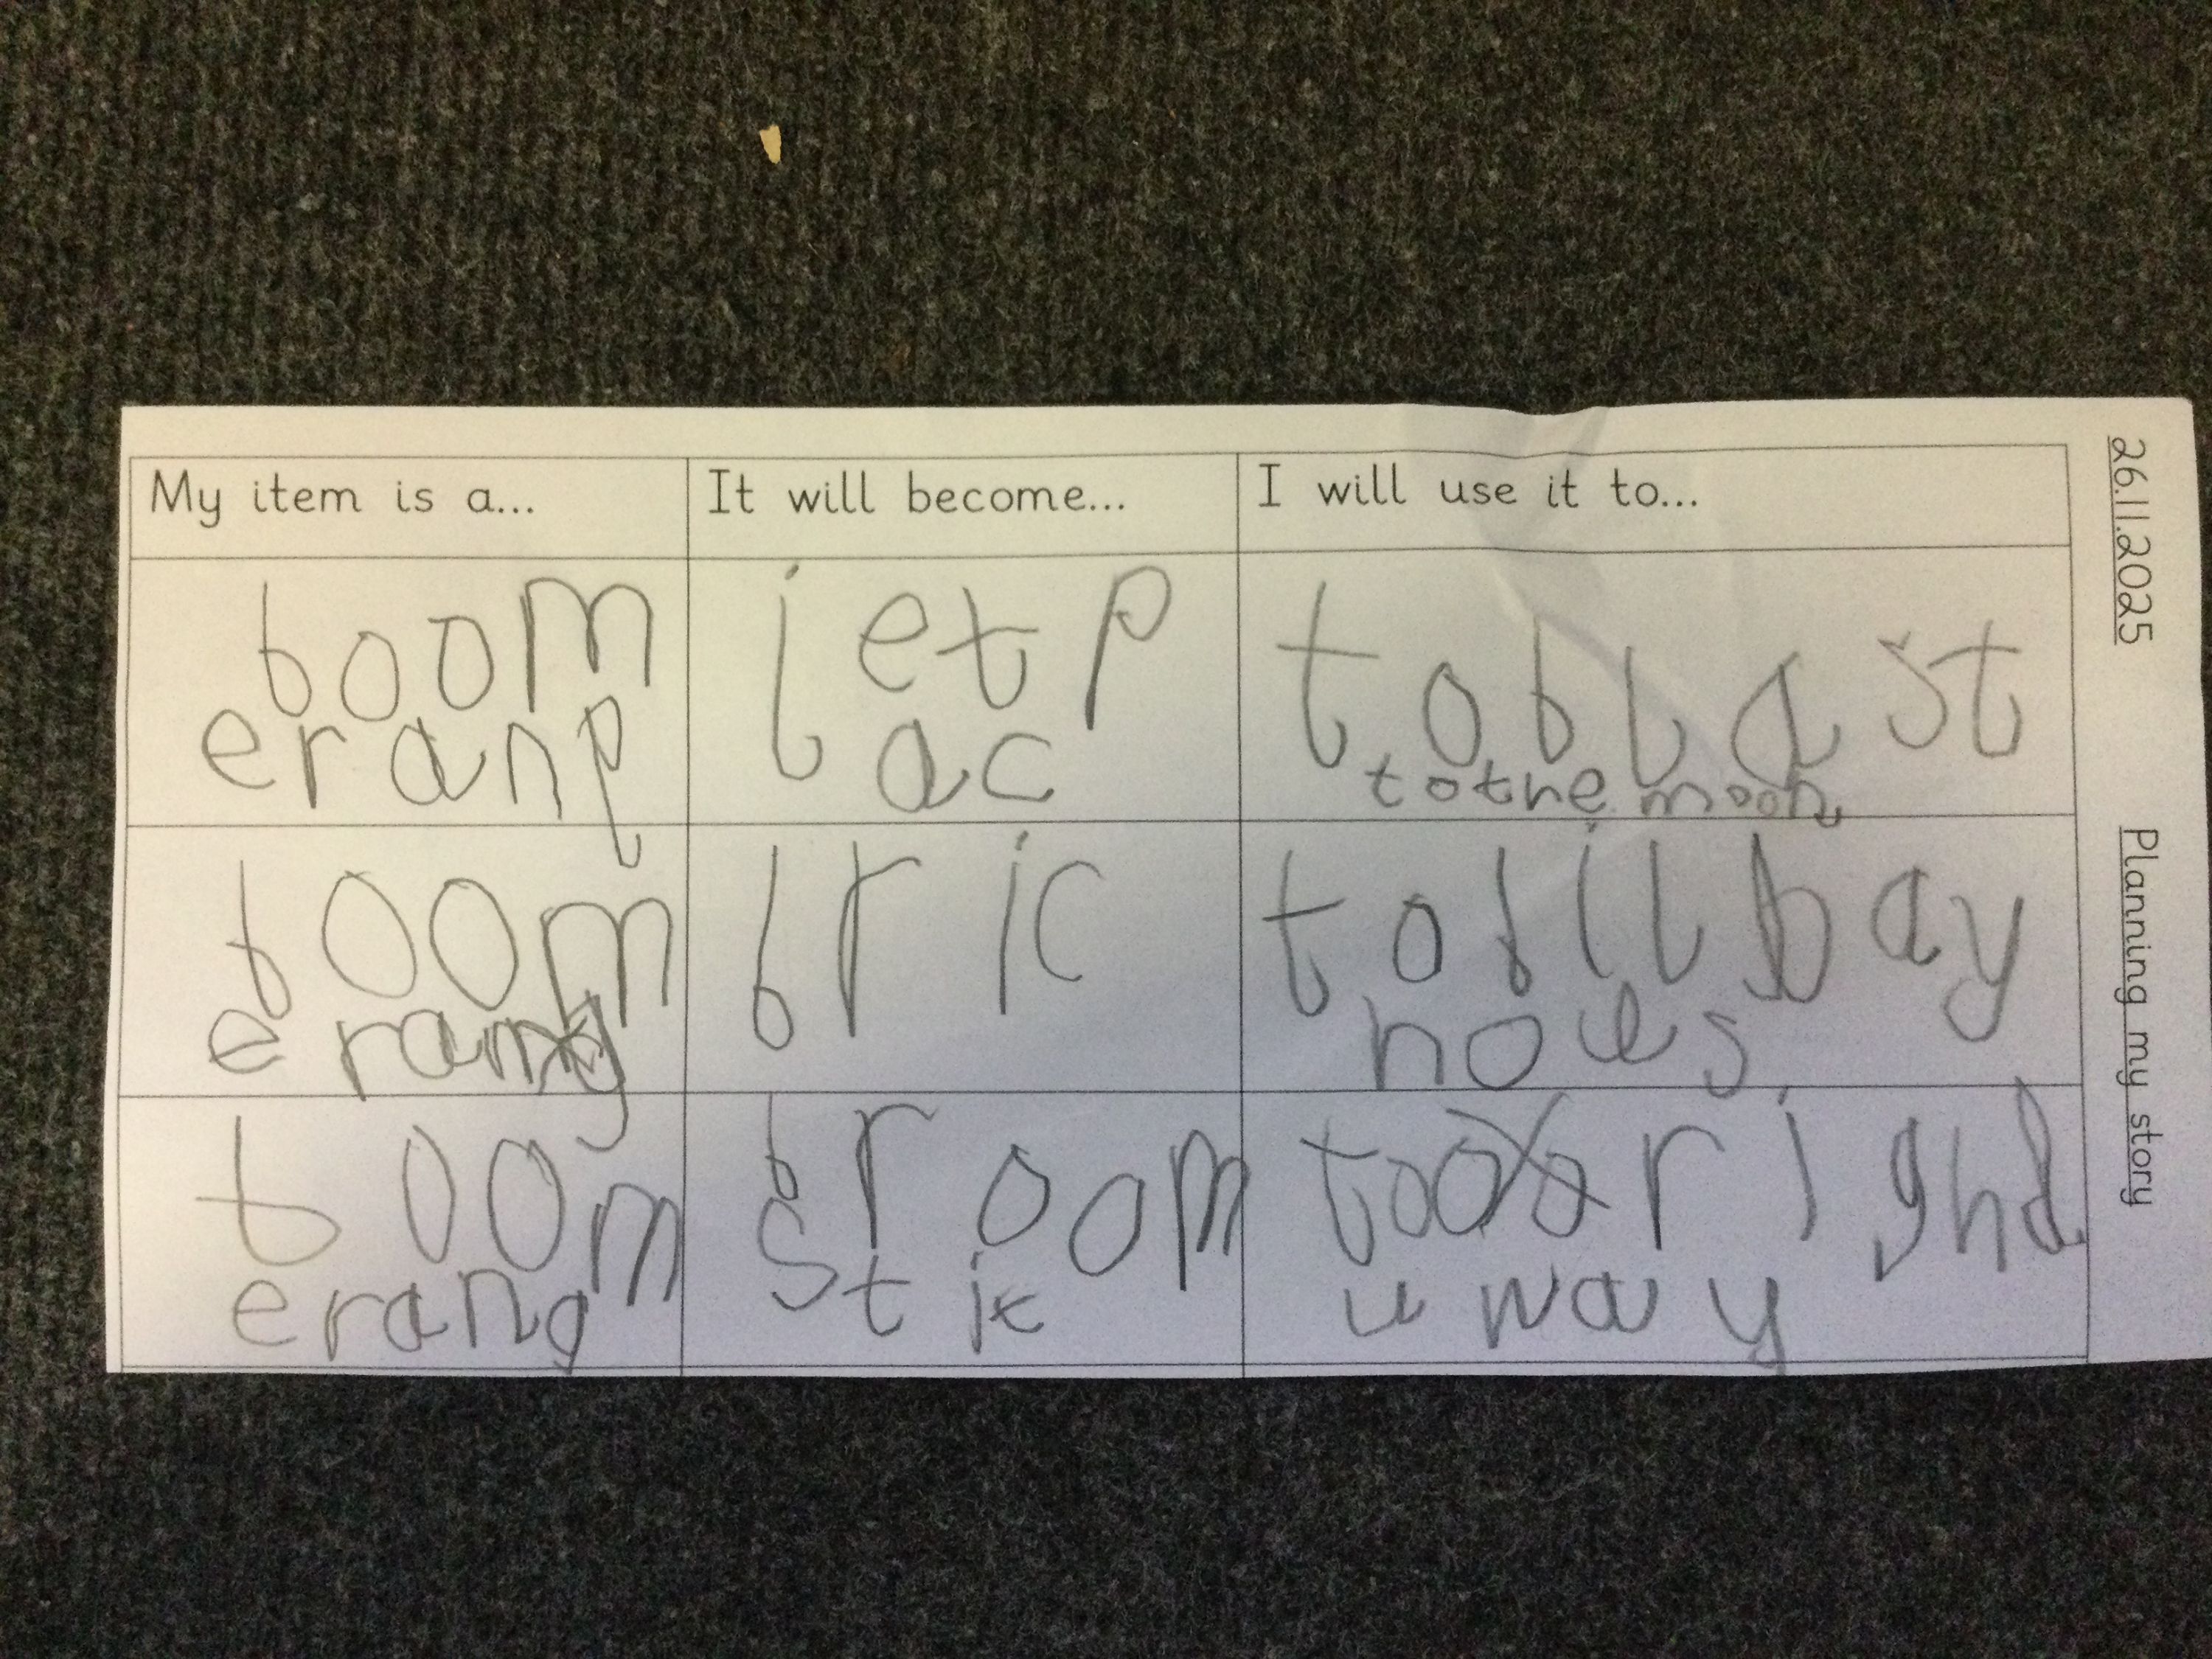 26.11.2025
Planning my story
My item is a...
It will become...
I will use it to...
boom
eranp
jetp
ac
to blast
to the moon
boom
erang
bric
to bil bay
howes
boom
erang
broom
stic
to righd
u way